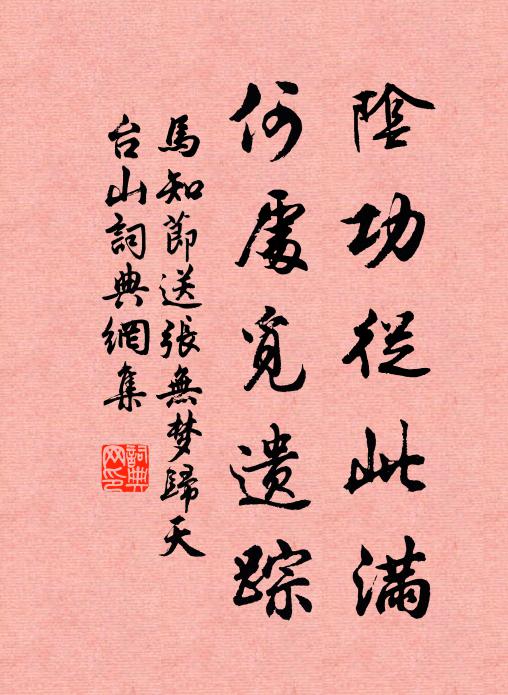 陰功從此滿
何處覓遺踪
馬知節送張無梦歸天
台山詞典網集
詞典网印